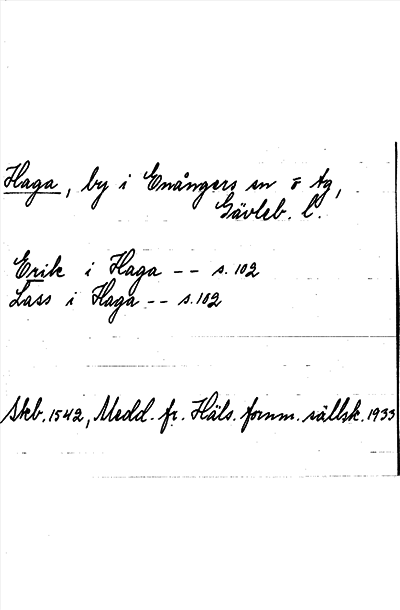 Haga, by i Enångers sn o tg,
Gävleb. l.
Erik i Haga -- s. 102
Lass i Haga -- s. 102
Skb. 1542, Medd. fr. Häls. fornm. sällsk. 1933